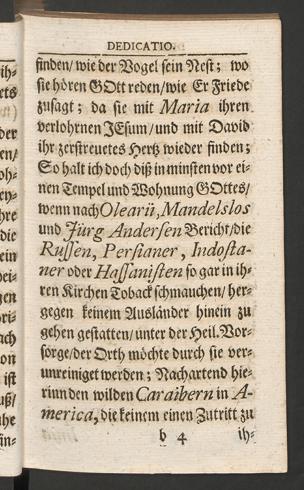 DEDICATIO.
finden/ wie der Vogel sein Nest; wo
sie hören GOtt reden/ wie Er Friede
zusagt; da sie mit Maria ihren
verlohrnen JEsum/ und mit David
ihr zerstreuetes Hertz wieder finden;
So halt ich doch diß in minsten vor ei-
nen Tempel und Wohnung GOttes/
wenn nach Olearii, Mandelslos
und Jürg Andersen Bericht/ die
Russen, Persianer, Indosta-
ner oder Hassanisten so gar in ih-
ren Kirchen Toback schmauchen/ her-
gegen keinem Ausländer hinein zu
gehen gestatten/ unter der Heil. Vor-
sorge/ der Orth möchte durch sie ver-
unreiniget werden; Nachartend hie-
rinn den wilden Caraibern in A-
merica, die keinem einen Zutritt zu
b 4
ih-